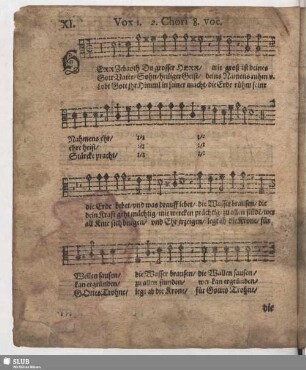 XI. Vox 1. 2. Chori 8. voc.
Err Zebaoth Du grosser Herr, wie groß ist deines
Gott Vatter, Sohn, heiliger Geist, deins Namens ruhm
Lobt Gott ihr Himmel in seiner macht, die Erde rühm seine
Nahmens ehr,
Stärcke pracht,
die Erde bebet, und was drauff lebet, die Wasser brausen, die
dein Krafft geht mächtig, zu allen
all Knie sich biegen, und Ehr erzeigen, legt ab die Krone, für
Wellen sausen, die Wasser brausen, die Wellen sausen,
kan ergründen, zu allen stunden, wer kan ergründen,
Gottes Throne, legt ab die Krone, für Gottes Throne,
die
SLUB